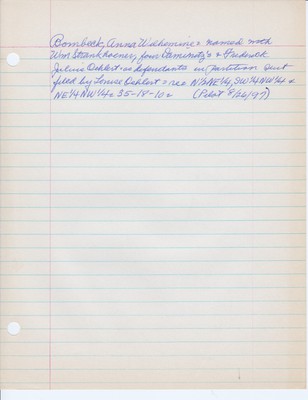 Bombeck, Anna Wilhemine = named with
Wm Strankhoener, four Daminitz's & Frederick
Julius Oehlert = as defendants in partition suit
filed by Louise Oehlert = re: N½NE¼, SW¼NW¼ &
NE¼NW¼ = 35-18-10 = (Pilot 8/26/97)